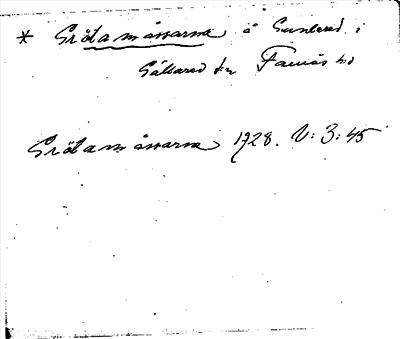 * Grötamossarna å Gunnared i
Gällared sn Faurås hd
Grötamossarna 1928. V: 3: 45